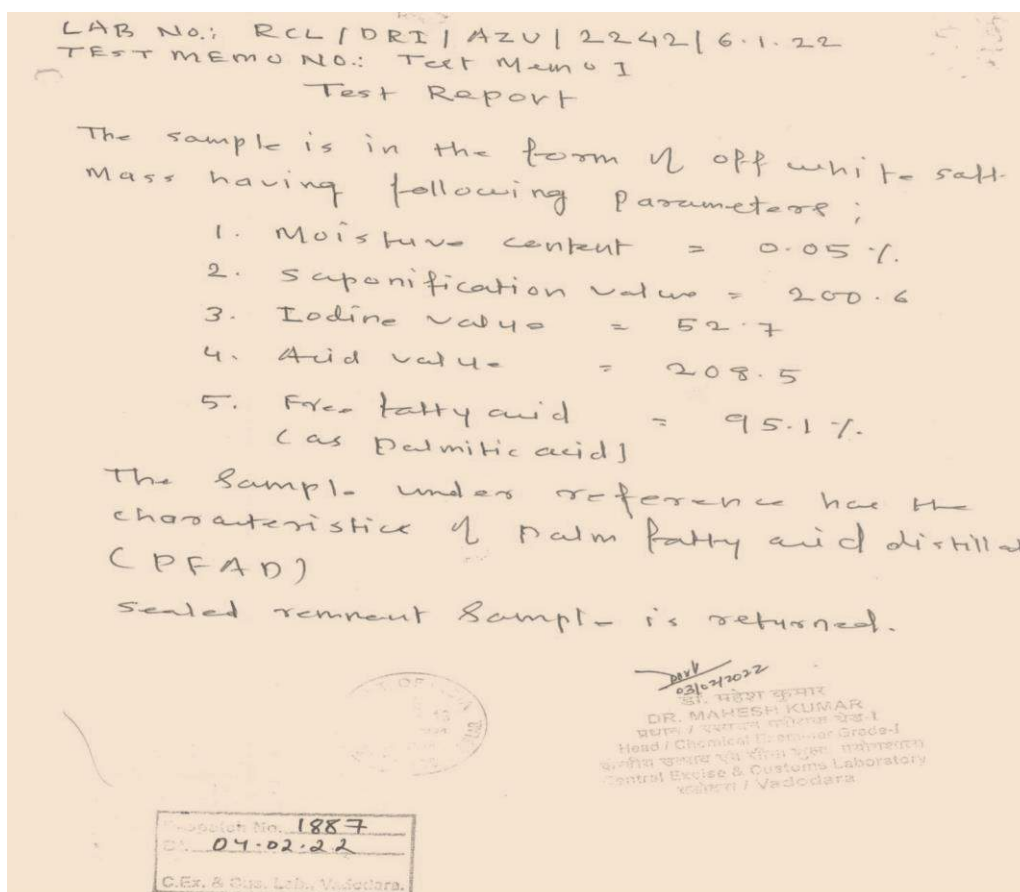 LAB No.: RCL/DRI/AZU/2242/6.1.22
TEST MEMO NO.: Test Memo I
Test Report
The sample is in the form of off white soft
Mass having following parameters;
1. Moisture content = 0.05 %.
2. Saponification value = 200.6
3. Iodine value = 52.7
4. Acid value = 208.5
5. Free fatty acid = 95.1 %.
(as Palmitic acid)
The Sample under reference has the
characteristics of Palm fatty acid distillat
(PFAD)
Sealed remnant Sample is returned.
03/02/2022
डॉ. महेश कुमार
DR. MAHESH KUMAR
Head / Chemical Examiner Grade-I
Central Excise & Customs Laboratory
/ Vadodara
No. 1887
04.02.22
C.Ex. & Cus. Lab., Vadodara.